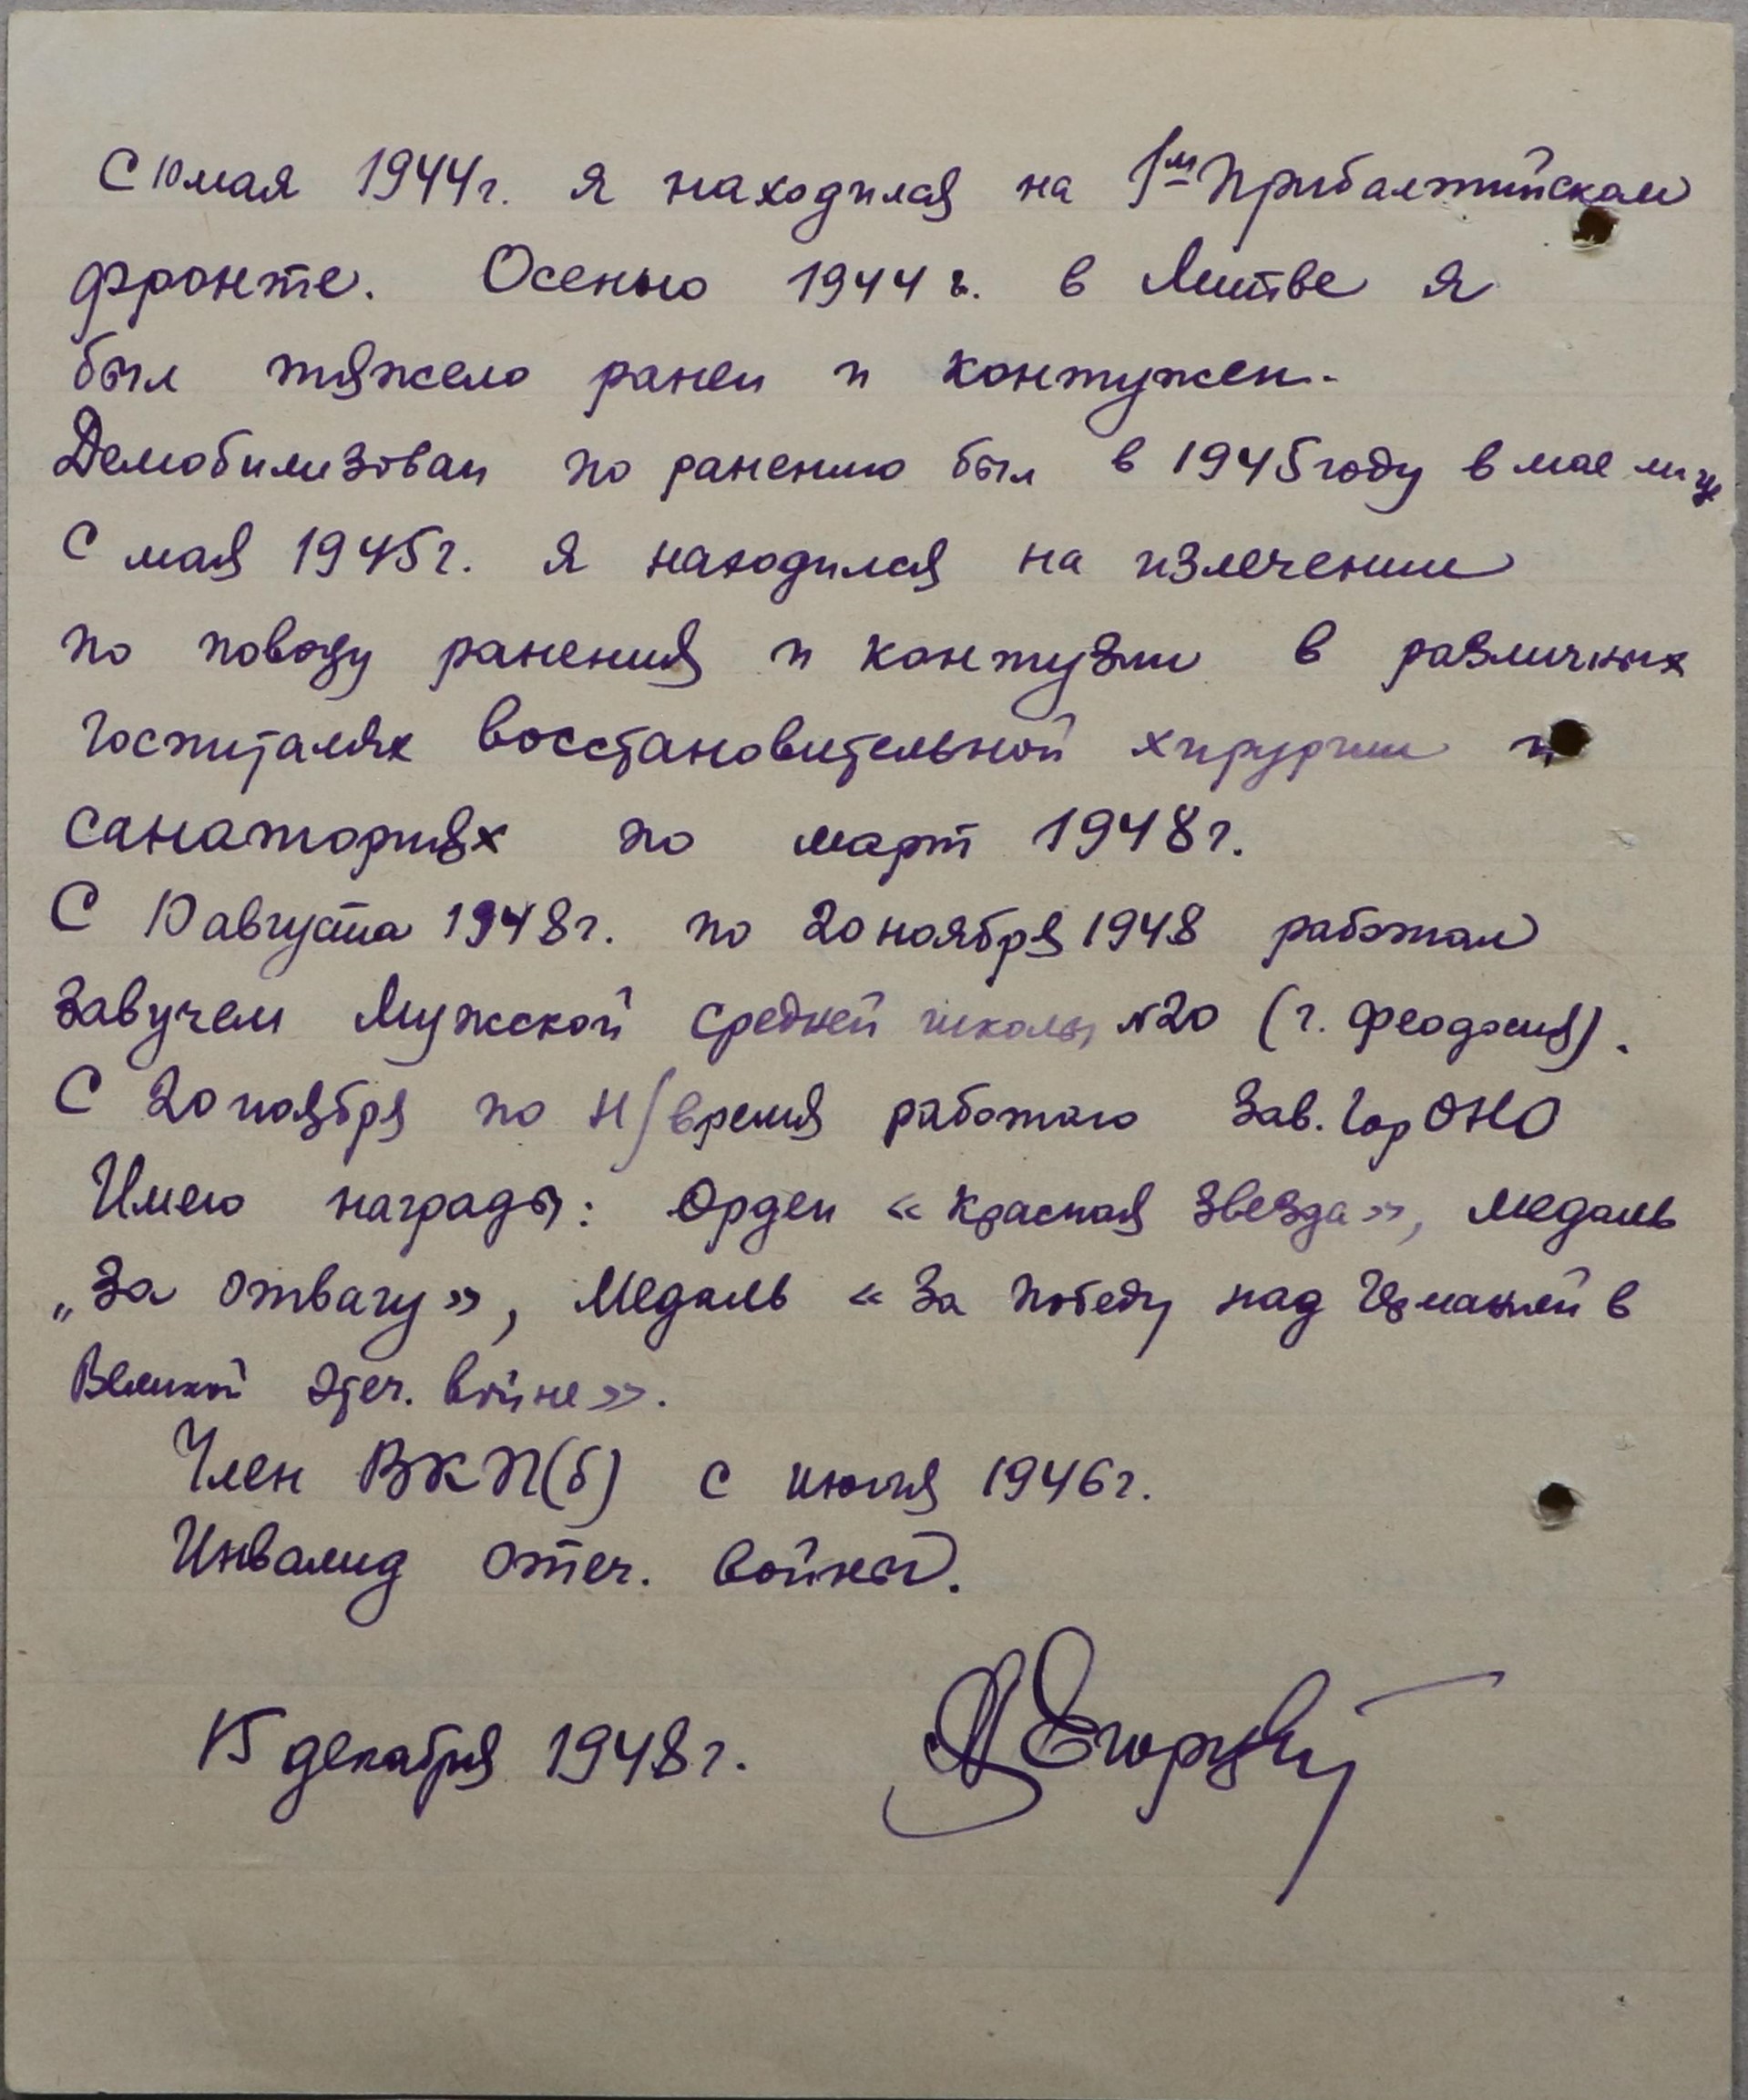 С 10 мая 1944 г. я находился на 1м Прибалтийском
фронте. Осенью 1944 г. в Литве я
был тяжело ранен и контужен.
Демобилизован по ранению был в 1945 году в мае м-це
С мая 1945 г. я находился на излечении
по поводу ранения и контузии в различных
госпиталях восстановительной хирургии и
санаториях по март 1948 г.
С 10 августа 1948 г. по 20 ноября 1948 работал
завучем Мужской средней школы №20 (г. Феодосия).
С 20 ноября по н/время работаю Зав. ГорОНО
Имею награды: Орден «Красная Звезда», медаль
„За отвагу», Медаль «За победу над Германией в
Великой Отеч. войне».
Член ВКП(б) с июля 1946 г.
Инвалид отеч. войны.
15 декабря 1948 г.